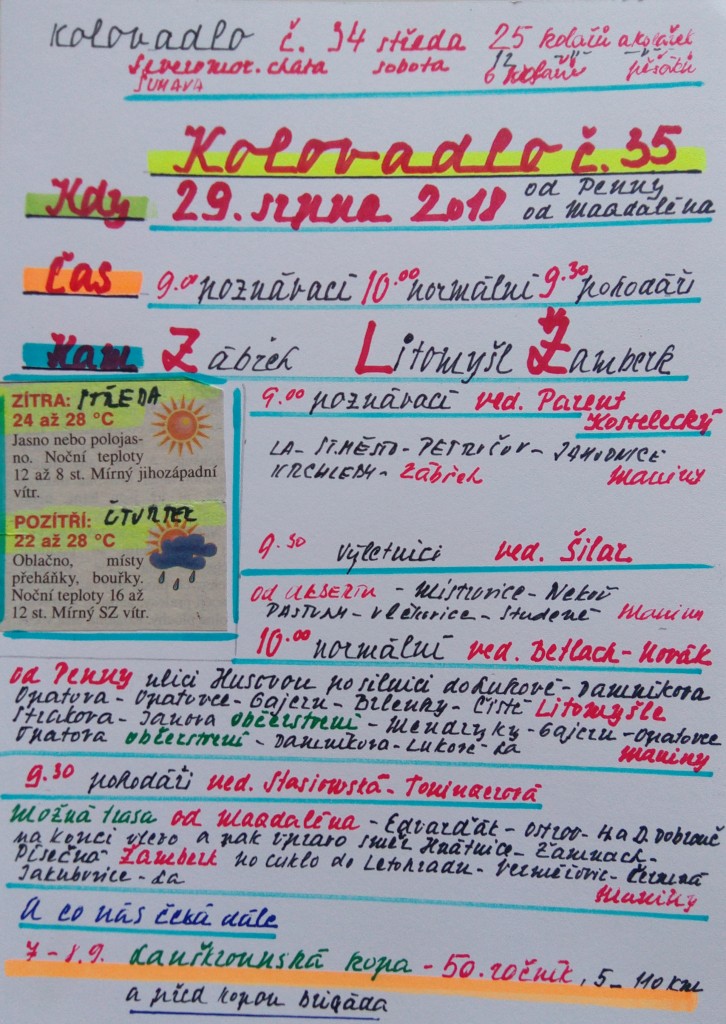 Kolovadlo č. 34 středa 25 kolařů a koláček
Severomor. chata sobota 12 pěšáků
ŠUMAVA 6 kolařů
Kolovadlo č. 35
Kdy 29. srpna 2018 od Penny
od Maadaléna
Čas 9.00 poznávací 10.00 normální 9.30 pohodáři
Kam Zábřeh Litomyšl Žamberk
ZÍTRA: STŘEDA
24 až 28 °C
Jasno nebo polojas-
no. Noční teploty
12 až 8 st. Mírný jihozápadní
vítr.
POZÍTŘÍ: ČTVRTEK
22 až 28 °C
Oblačno, místy
přeháňky, bouřky.
Noční teploty 16 až
12 st. Mírný SZ vítr.
9.00 poznávací ved. Parent
Kostelecký
LA - ST.MĚSTO - PETRUŠOV - JAHODNICE
KRCHLEBY - Zábřeh Maniny
9.30 výletníci ved. Šilar
od ALBERTA - Mistrovice - Nekoř
PASTVINY - Vlčkovice - Studené Maniny
10.00 normální ved. Betlach - Novák
od Penny ulicí Husovou po silnici do Lukové - Damníkova
Opatova - Opatovce - Gajeru - Bělenky - Čisté Litomyšle
Strakova - Janova občerstvení - Mendryky - Gajeru - Opatovce
Opatova občerstvení - Damníkova - Lukové - La Maniny
9.30 pohodáři ved. Stasiowská -
Možná trasa od Maadaléna - Edvarďák - Ostrov - H. a D. Dobrouč
na konci vlevo a pak vpravo směr Hnátnice - Žampach -
Písečná Žamberk po cyklo do Letohradu - Verměřovic - Čermná
Jakubovice - La Maniny
A co nás čeká dále
7 - 8.9. Lanškrounská kopa - 50. ročník, 5 - 110 km
a před kopou brigáda